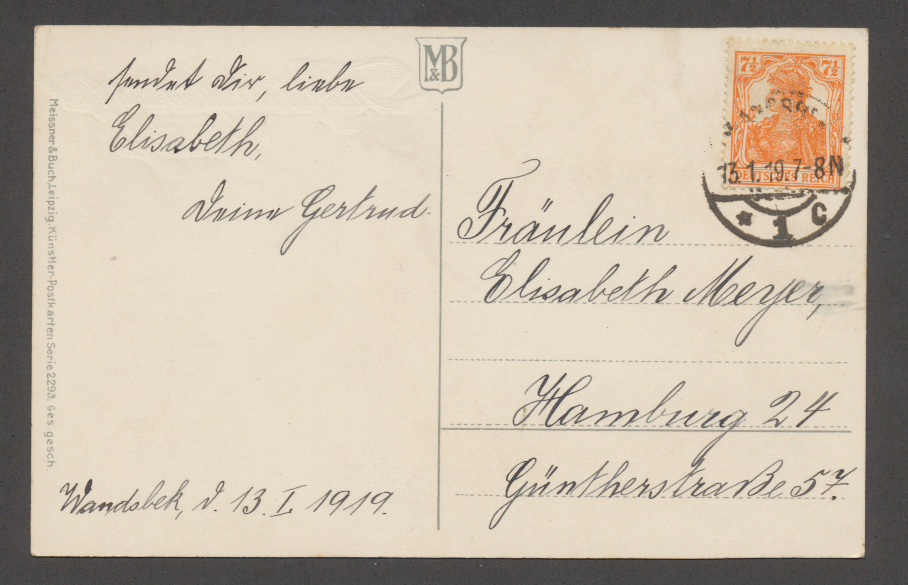 sendet Dir, liebe
Elisabeth,
Deine Gertrud.
Wandsbek, d. 13. I. 1919.
Meissner & Buch, Leipzig. Künstler-Postkarten Serie 2293. Ges. gesch.
M&B
7½ 7½
DEUTSCHES REICH
13.1.19.7-8N
* 1 c
Fräulein
Elisabeth Meyer,
Hamburg 24
Güntherstraße 57.